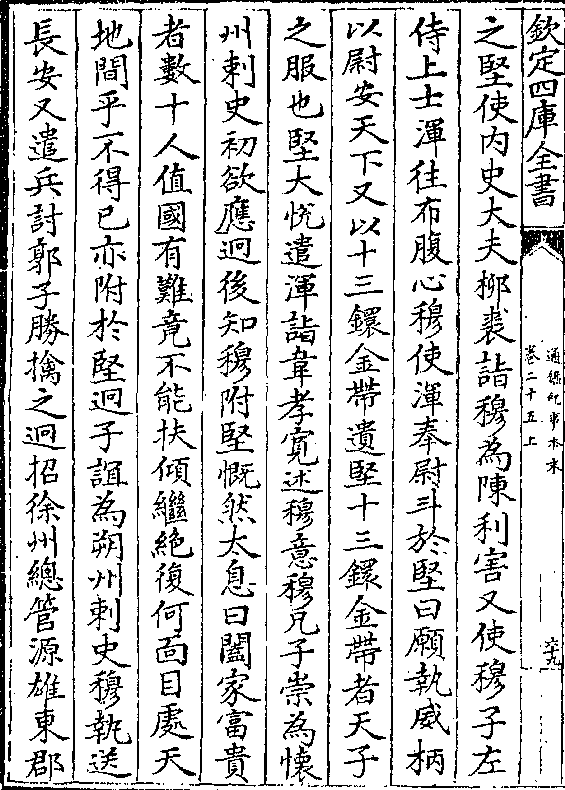 欽定四庫全書
通鑑紀事本末
卷二十五上
六十九
之堅使内史大夫柳裘詣穆為陳利害又使穆子左
侍上士渾往布腹心穆使渾奉尉斗於堅曰願執威柄
以尉安天下又以十三鐶金帶遺堅十三鐶金帶者天子
之服也堅大悅遣渾詣韋孝寛述穆意穆兄子崇為懷
州刺史初欲應迥後知穆附堅慨然太息曰闔家富貴
者數十人值國有難竟不能扶傾繼絶復何面目處天
地間乎不得已亦附於堅迥子誼為朔州刺史穆執送
長安又遣兵討郭子勝擒之迥招徐州總管源雄東郡